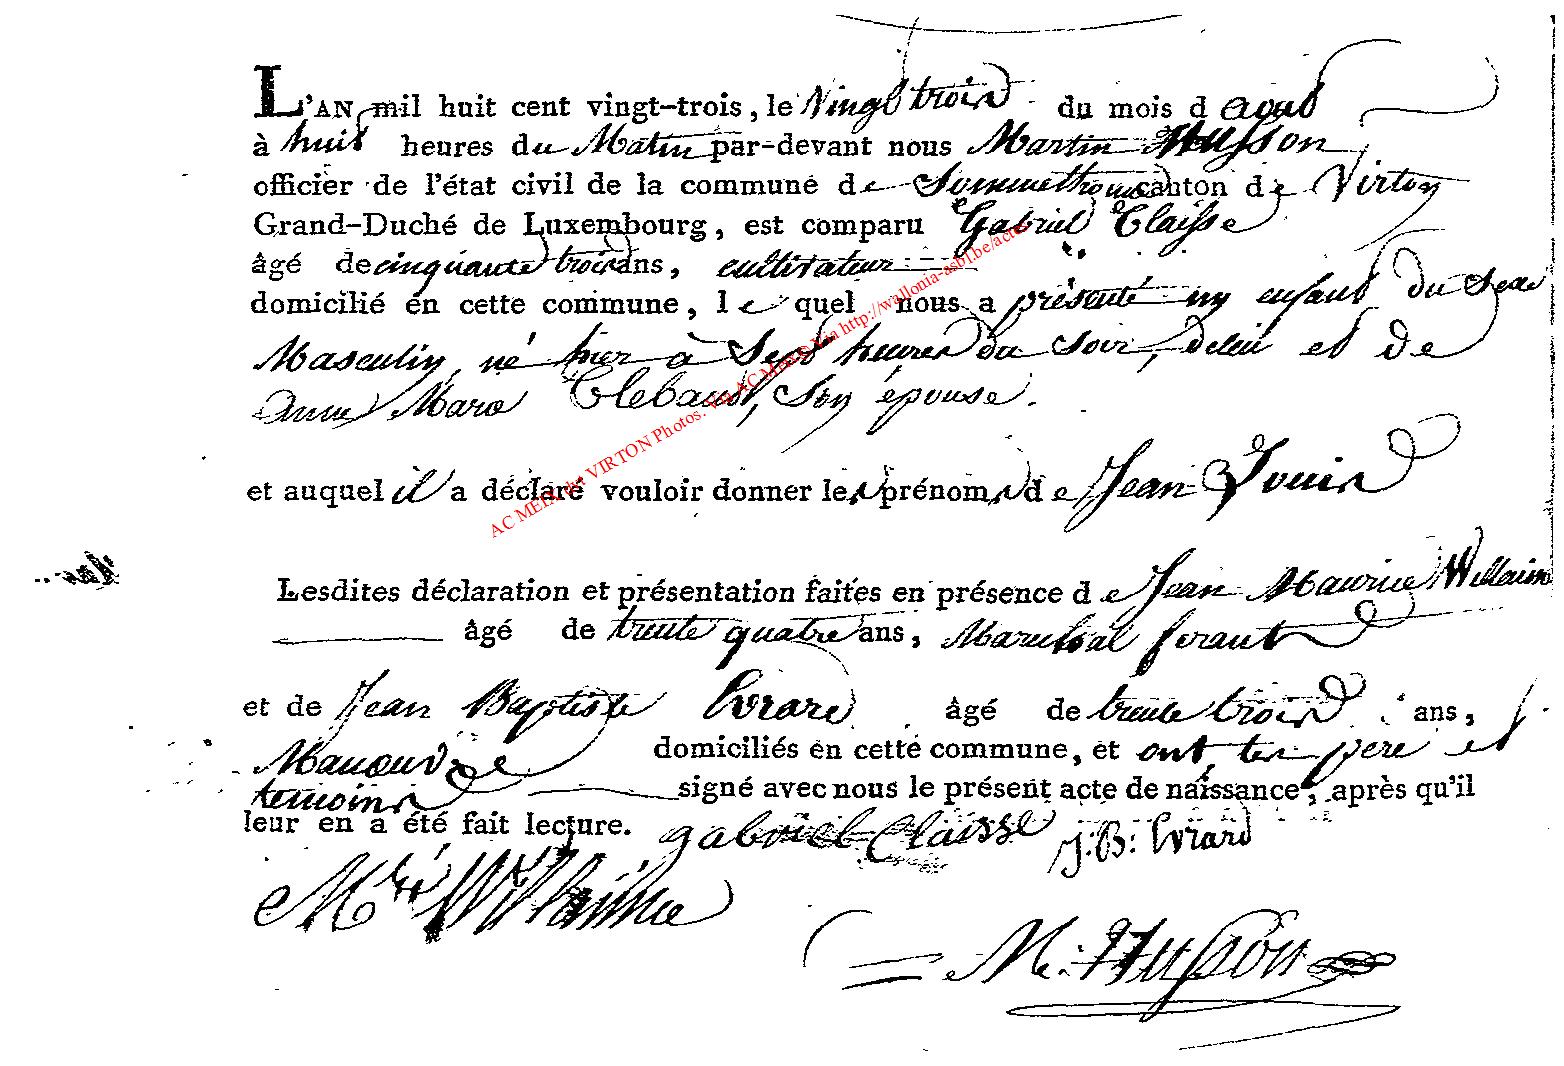 L'AN mil huit cent vingt-trois, le Vingt trois du mois d aout
à huit heures du Matin par-devant nous Martin Husson
officier de l'état civil de la commune de Sommethonne canton de Virton
Grand-Duché de Luxembourg, est comparu Gabriel Claisse
âgé de cinquante trois ans, cultivateur
domicilié en cette commune, le quel nous a présenté un enfant du sexe
Masculin, né hier à Sept heures du Soir, delui et de
Anne Marie Clebant, Son épouse.
et auquel il a déclaré vouloir donner les prénoms de Jean Louis
Lesdites déclaration et présentation faites en présence de Jean Maurice Willaime
âgé de trente quatre ans, Marechal ferant
et de Jean Baptiste Evrard âgé de trente trois ans,
Manouvre domiciliés en cette commune, et ont, les pere et
temoins signé avec nous le présent acte de naissance, après qu'il
leur en a été fait lecture. gabriel Claisse J: B: Evrard
Mce Willaime
M. Husson
AC MEIX dvt VIRTON Photos. Via http://wallonia-asbl.be/actes